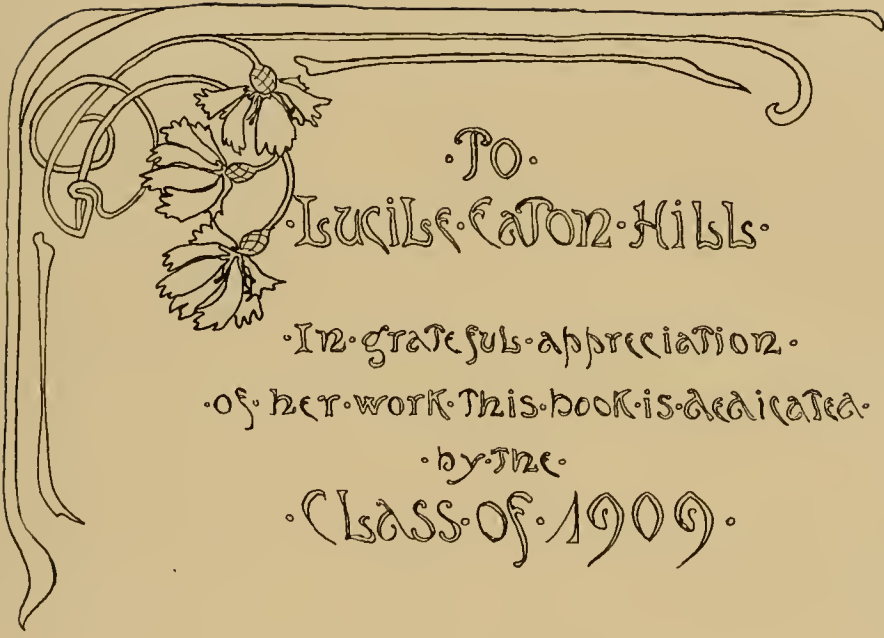 ·To·
·Lucile·Eaton·Hill·
·In·grateful·appreciation·
·of·her·work·this·book·is·dedicated·
·by·the·
·Class·of·1909·